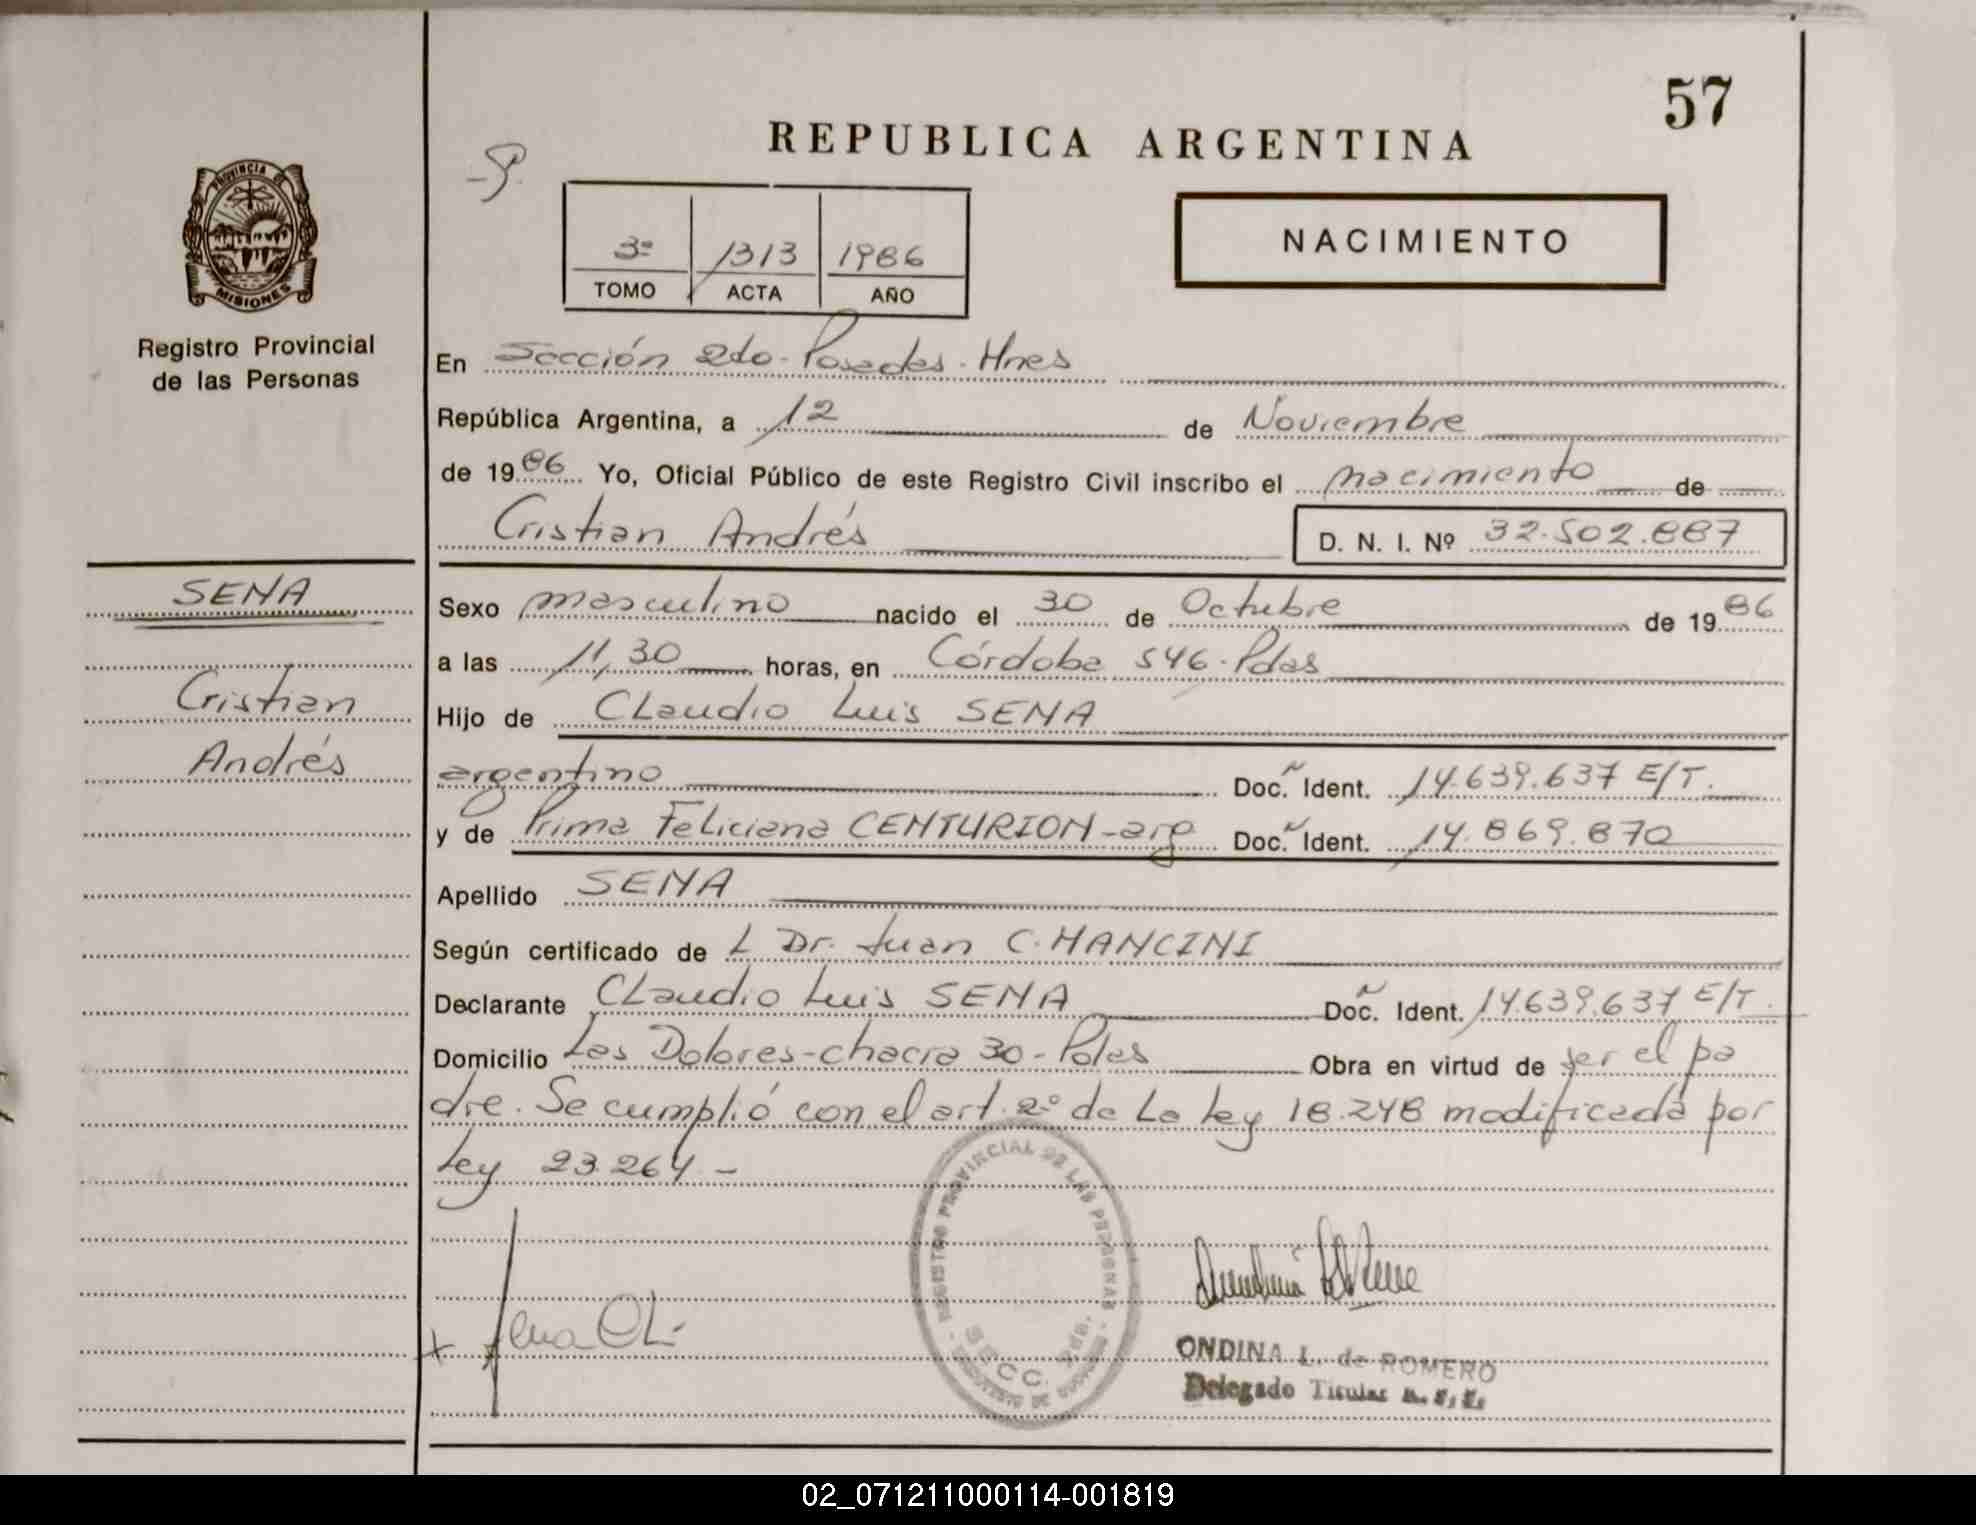 57
REPUBLICA ARGENTINA
PROVINCIA DE
MISIONES
Registro Provincial
de las Personas
3º 1313 1986
TOMO ACTA AÑO
NACIMIENTO
En Sección 2do. Posadas. Mnes
República Argentina, a 12 de Noviembre
de 1986 Yo, Oficial Público de este Registro Civil inscribo el nacimiento de
Cristian Andrés D. N. I. Nº 32.502.887
SENA
Cristian
Andrés
Sexo masculino nacido el 30 de Octubre de 1986
a las 11,30 horas, en Córdoba 546. Pdas
Hijo de Claudio Luis SENA
argentino Doc. Ident. 14.639.637 E/T.
y de Prima Feliciana CENTURION-arg Doc. Ident. 14.869.870
Apellido SENA
Según certificado de L Dr. Juan C. MANCINI
Declarante Claudio Luis SENA Doc. Ident. 14.639.637 E/T.
Domicilio Las Dolores-chacra 30-Pdas Obra en virtud de ser el pa
dre. Se cumplió con el art. 2º de La Ley 18.248 modificada por
Ley 23.264.-
REGISTRO PROVINCIAL DE LAS PERSONAS
SECC. 2da.
Sena CL.
ONDINA L. de ROMERO
Delegado Titular
02_071211000114-001819